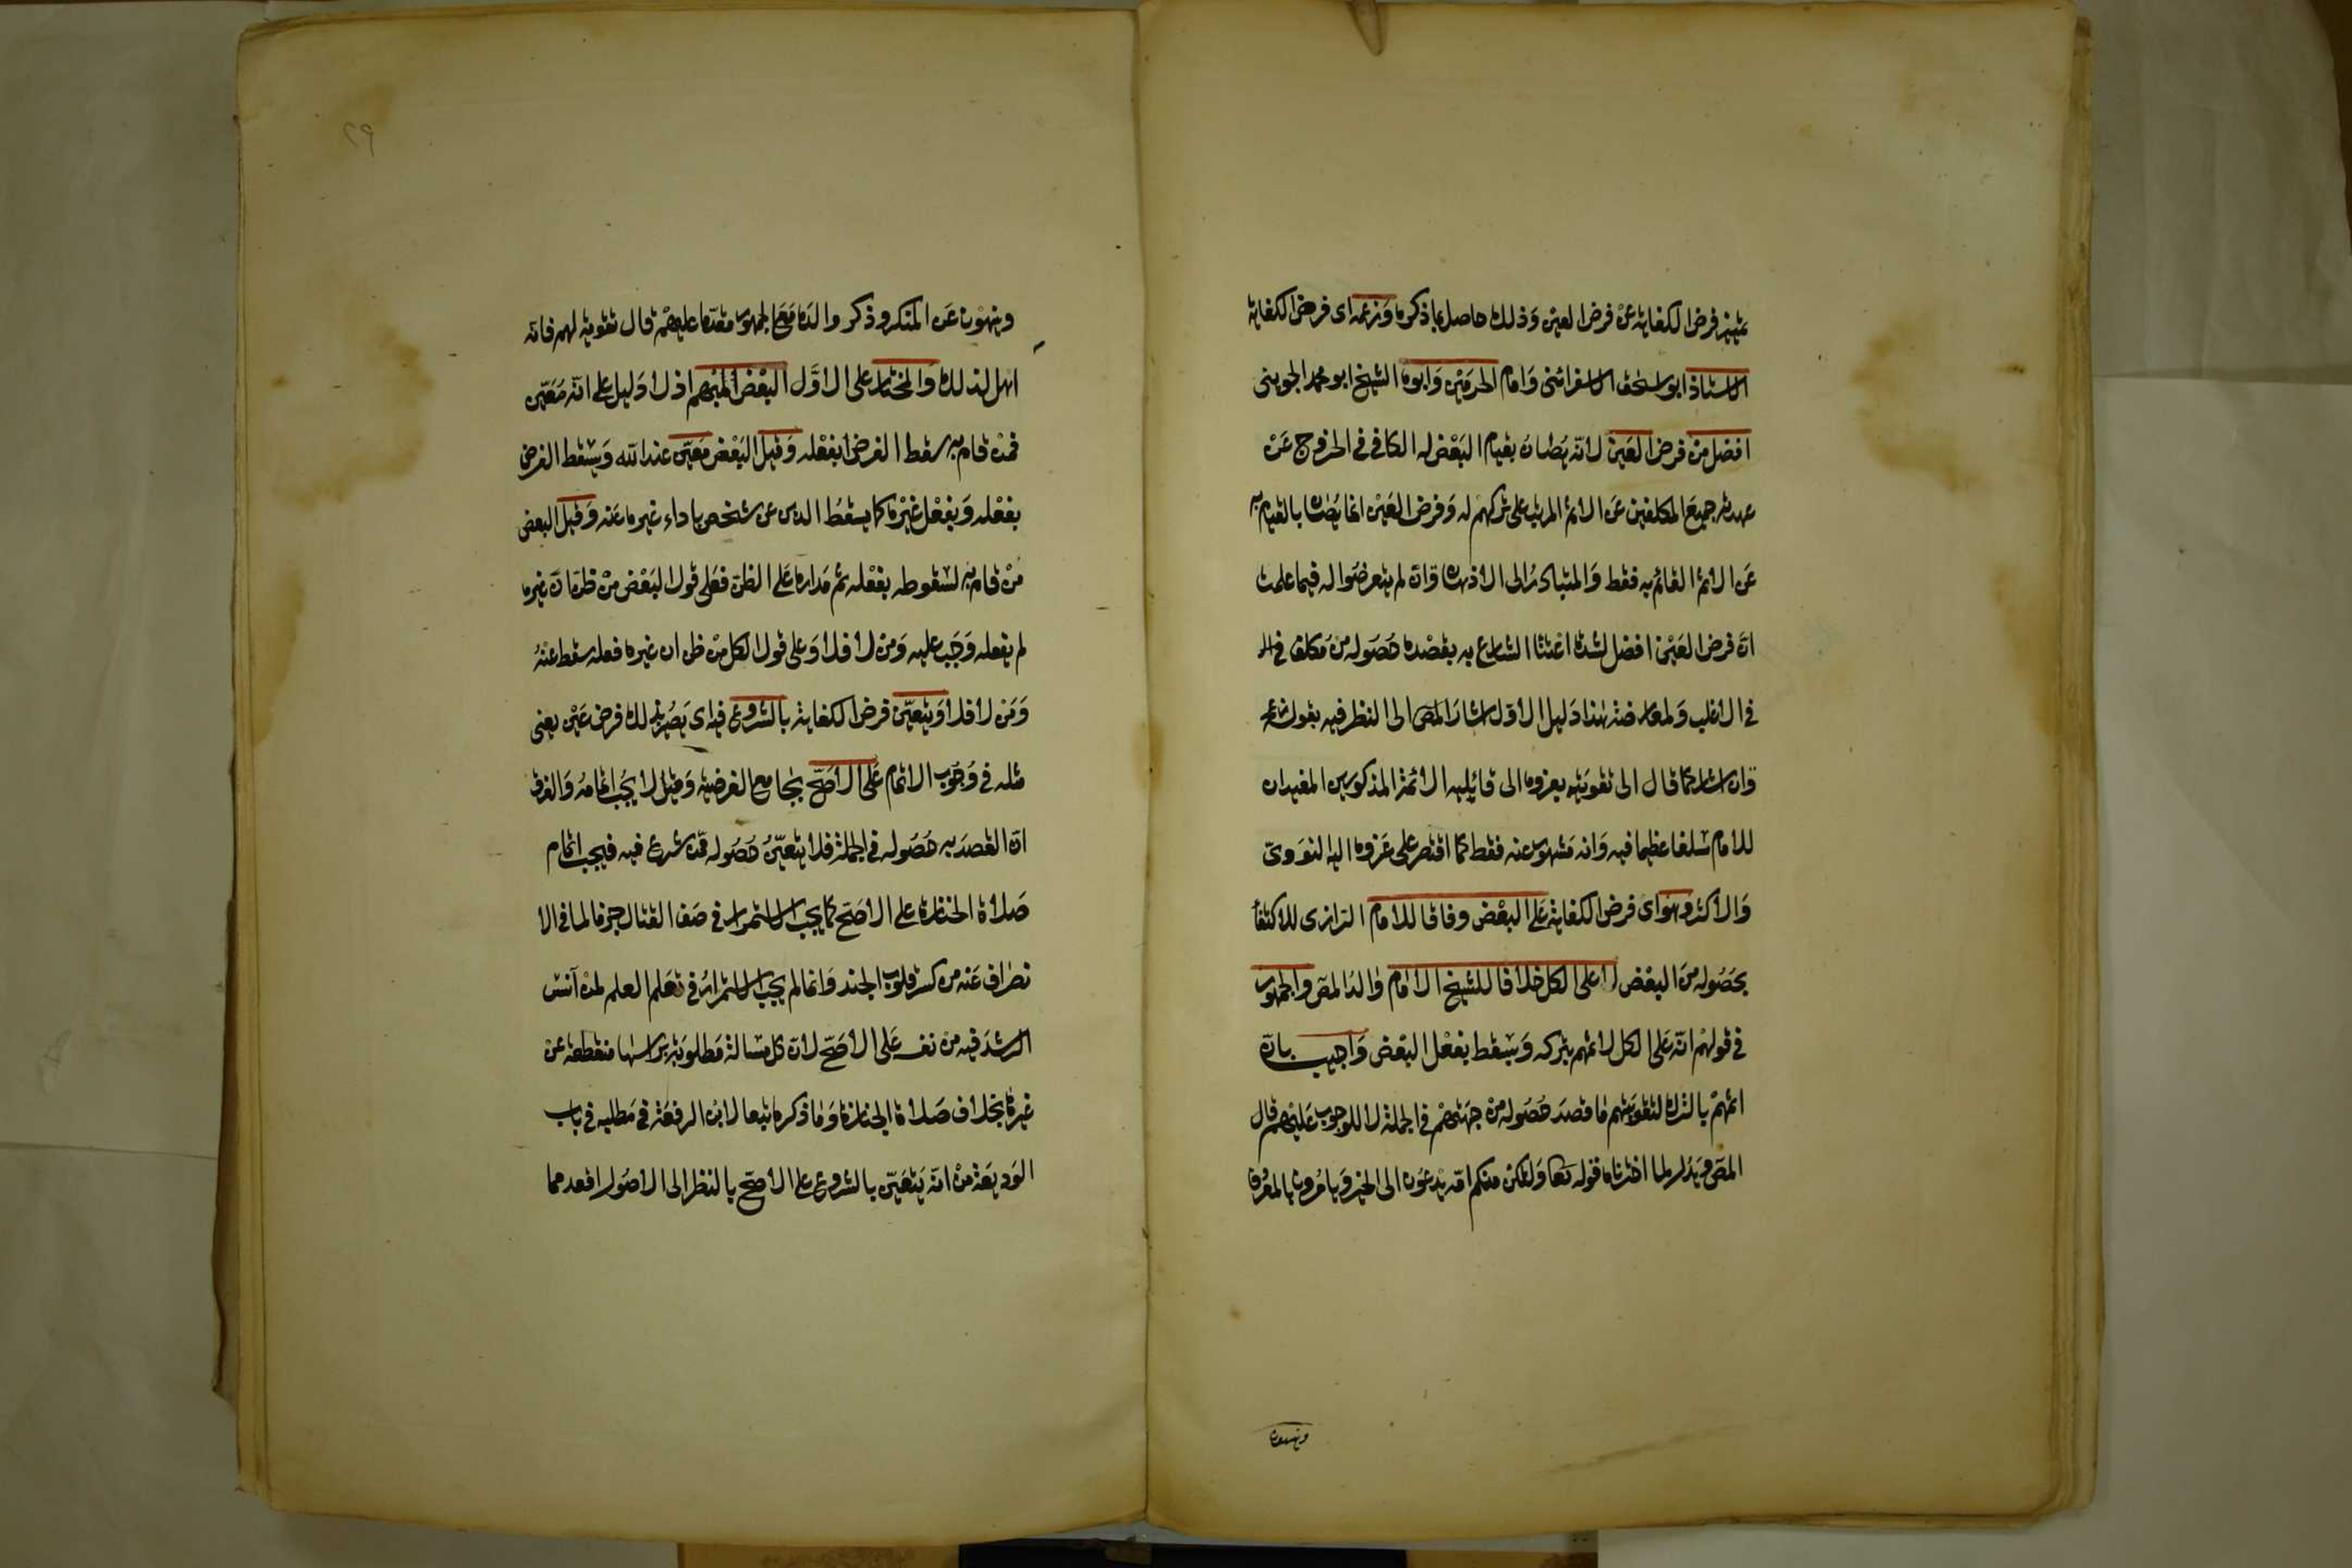 تمييز فرض الكفاية عن فرض العين وذلك حاصل بما ذكره وزعمه اى فرض الكفاية
الاستاذ ابو اسحق الاسفرائنى وامام الحرمين وابوه الشيخ ابو محمد الجوينى
افضل من فرض العين لانه يصان بقيام البعض له الكافى فى الخروج عن
عهدته جميع المكلفين عن الاثم المرتب على تركهم له وفرض العين انما يصان بالقيام به
عن الاثم القائم به فقط والمتبادر الى الاذهان وان لم يتعرضوا له فيما علمت
ان فرض العين افضل لشدة اعتنا الشارع به بقصده حصوله من مكلف فى الـ
فى الاغلب ولمعارضة هذا دليل الاول اشار المص الى النظر فيه بقوله زعمه
وان اشار كما قال الى تقويته بعزوه الى قائليه الائمة المذكورين المفيد ان
للامام سلفا عظيما فيه وانه مشهور عنه فقط كما اقتصر على عزوه اليه النووى
والاكثر وهو اى فرض الكفاية على البعض وفاقا للامام الرازى للاكتفأ
بحصوله من البعض لا على الكل خلافا للشيخ الامام والد المص والجمهور
فى قولهم انه على الكل لاثمهم بتركه ويسقط بفعل البعض واجيب بان
اثمهم بالترك لتفويتهم ما قصد حصوله من جهتهم فى الجملة لا للوجوب عليهم قال
المص ويدل لما اخترناه قوله تعا ولتكن منكم امة يدعون الى الخير ويأمرون بالمعروف
وينهون
وينهون عن المنكر وذكر والده مع الجمهور مقدما عليهم قال تقوية لهم فانه
اهل لذلك والمختار على الاول البعض المبهم اذ لا دليل على انه معين
فمن قام به سقط الفرض بفعله وقيل البعض معين عند الله ويسقط الفرض
بفعله وبفعل غيره كما يسقط الدين عن شخص باداء غيره عنه وقيل البعض
من قام به لسقوطه بفعله ثم مداره على الظن فعلى قول البعض من ظن ان غيره
لم يفعله وجب عليه ومن لا فلا وعلى قول الكل من ظن ان غيره فعله سقط عنه
ومن لا فلا ويتعين فرض الكفاية بالشروع فيه اى يصير بذلك فرض عين يعنى
مثله فى وجوب الاتمام على الاصح بجامع الفرضية وقيل لا يجب اتمامه والفرق
ان القصد به حصوله فى الجملة فلا يتعين حصوله ممن شرع فيه فيجب اتمام
صلاة الجنازة على الاصح كما يجب الاستمرار فى صف القتال جزما لما فى الا
نصراف عنه من كسر قلوب الجند وانما لم يجب الاستمرار فى تعلم العلم لمن آنس
الرشد فيه من نفسه على الاصح لان كل مسالة مطلوبة براسها منقطعة عن
غيرها بخلاف صلاة الجنازة وما ذكره تبعا لابن الرفعة فى مطلبه فى باب
الوديعة من انه يتعين بالشروع على الاصح بالنظر الى الاصول اقعد مما